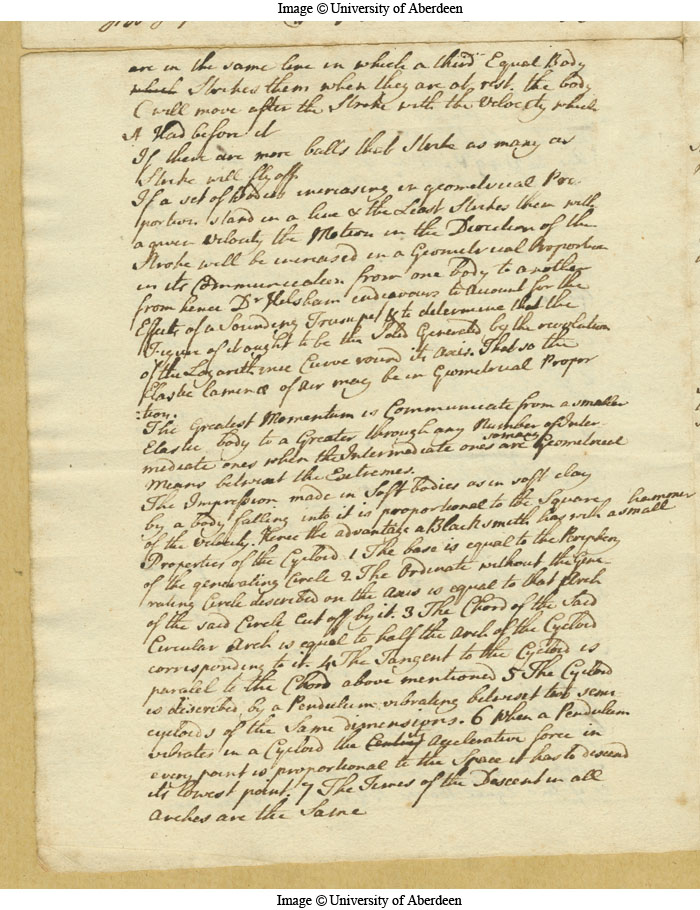 Image © University of Aberdeen
are in the same line in which a third Equal Body
which Strikes them when they are at rest. the body
C will move after the Stroke with the Velocity which
A Had before it
If there are more balls that Strike as many as
Strike will fly off.
If a set of Bodies increasing in geometrical Pro-
portion stand in a line & the Least Strikes them with
a given Velocity the Motion in the Direction of the
Stroke will be increased in a Geometrical Proportion
in its Communication from one body to another
from hence Dr Helsham endeavours to Account for the
Effects of a Sounding Trumpet & to determine that the
Figure of it ought to be the Solid Generated by the revolution
of the Logarithmic Curve round its axis. That so the
Elastic laminæ of air may be in Geometrical Propor
:tion.
The Greatest Momentum is Communicate from a smaller
Elastic body to a Greater through any Number of Inter-
mediate ones when the Intermediate ones are so many Geometrical
Means betwixt the Extremes.
The Impression made in Soft bodies as in soft clay
by a body falling into it is proportional to the Square
of the velocity. Hence the advantage a Blacksmith has with a small hammer
Properties of the Cycloid 1 The base is equal to the Periphery
of the generating Circle 2 The Ordinate without the Gene-
rating Circle described on the axis is equal to that Arch
of the said Circle Cut off by it. 3 The Chord of the Said
Circular Arch is equal to half the Arch of the Cycloid
corresponding to it. 4 The Tangent to the Cycloid is
paralel to the Chord above mentioned 5 The Cycloid
is discribed by a Pendulum vibrating betwixt two semi
cycloids of the Same dimensions. 6 When a Pendulum
vibrates in a Cycloid the accelerative force in
every point is proportional to the Space it has to descend
its lowest point. 7 The Times of the Descent in all
arches are the Same
Image © University of Aberdeen